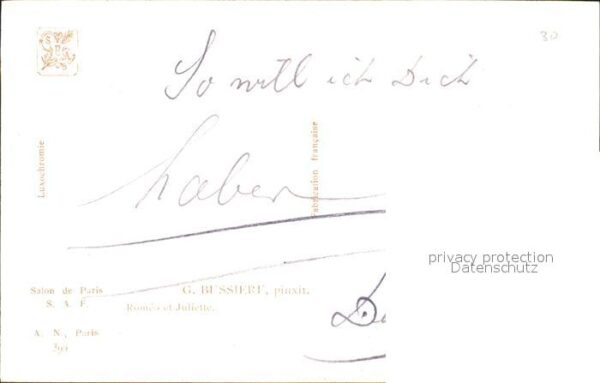 30
So will ich Dich
haben
Luxochromie
Fabrication française
privacy protection
Datenschutz
Salon de Paris
S. A. F.
G. BUSSIERE, pinxit.
Roméo et Juliette.
A. N., Paris